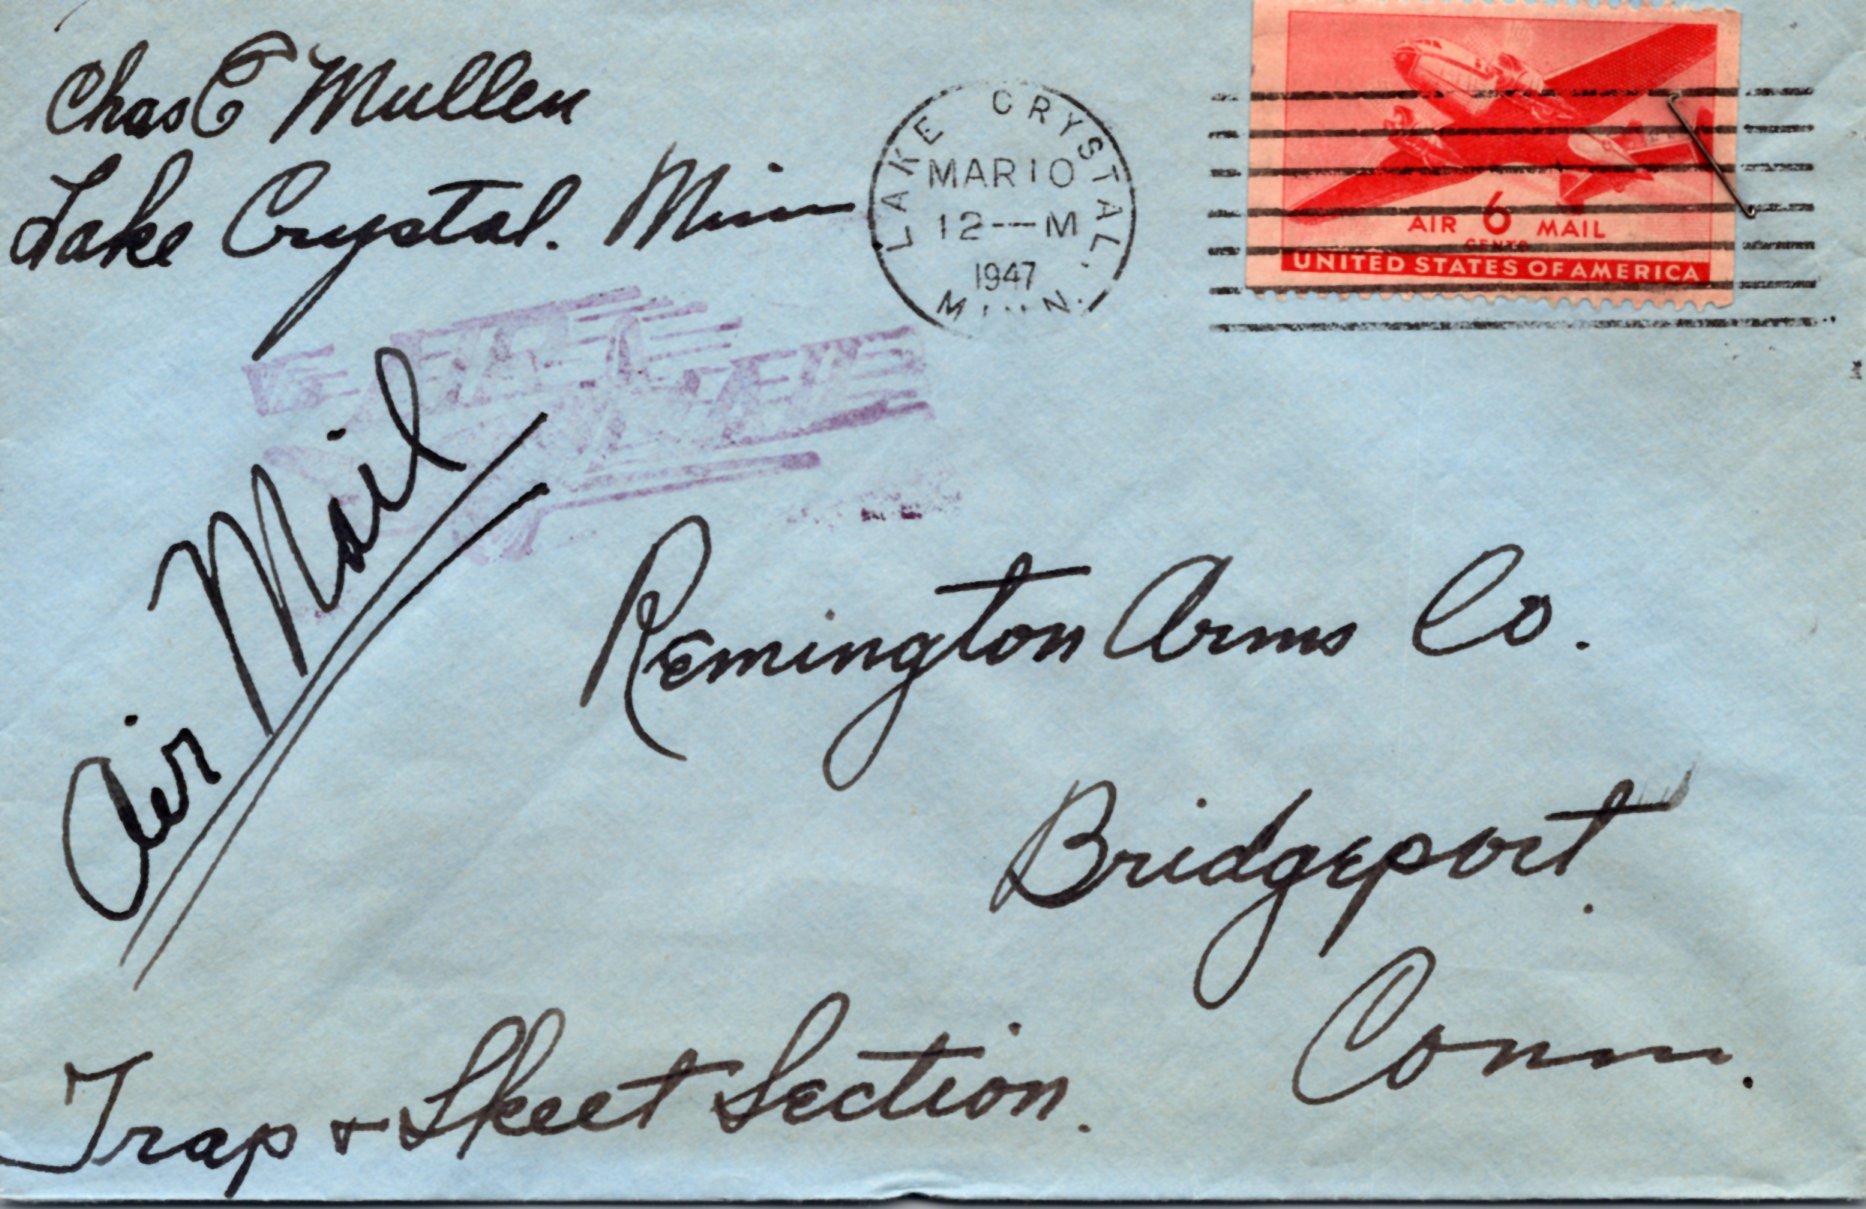 Chas E Mullen
Lake Crystal. Minn
LAKE CRYSTAL,
MAR 10
12--M
1947
MINN.
AIR 6 MAIL
CENTS
UNITED STATES OF AMERICA
Air Mail
Remington Arms Co.
Bridgeport.
Conn.
Trap + Skeet Section.